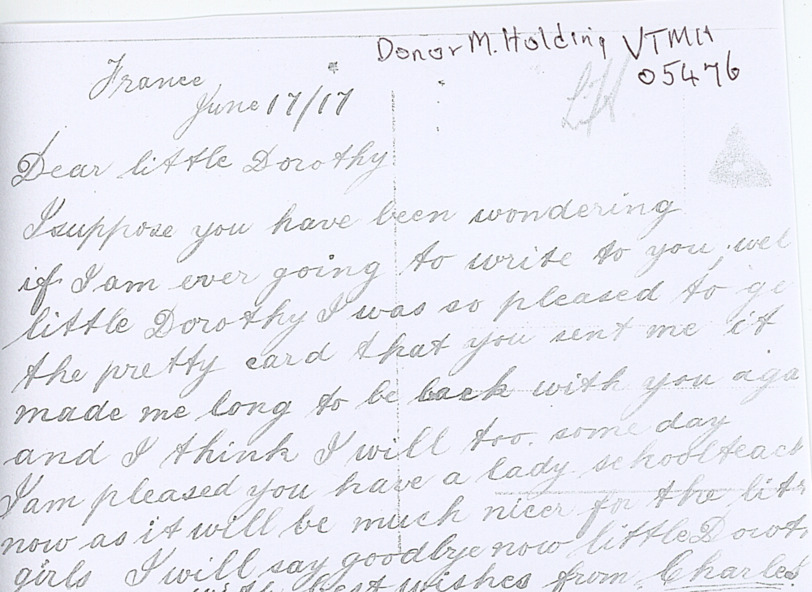 Donor M. Holding VTMH
05476
France
June 17/17
Dear little Dorothy
I suppose you have been wondering
if I am ever going to write to you wel
little Dorothy I was so pleased to ge
the pretty card that you sent me it
made me long to be back with you aga
and I think I will too. some day
I am pleased you have a lady schoolteach
now as it will be much nicer for the litt
girls I will say goodbye now little Doroth
with best wishes from Charles